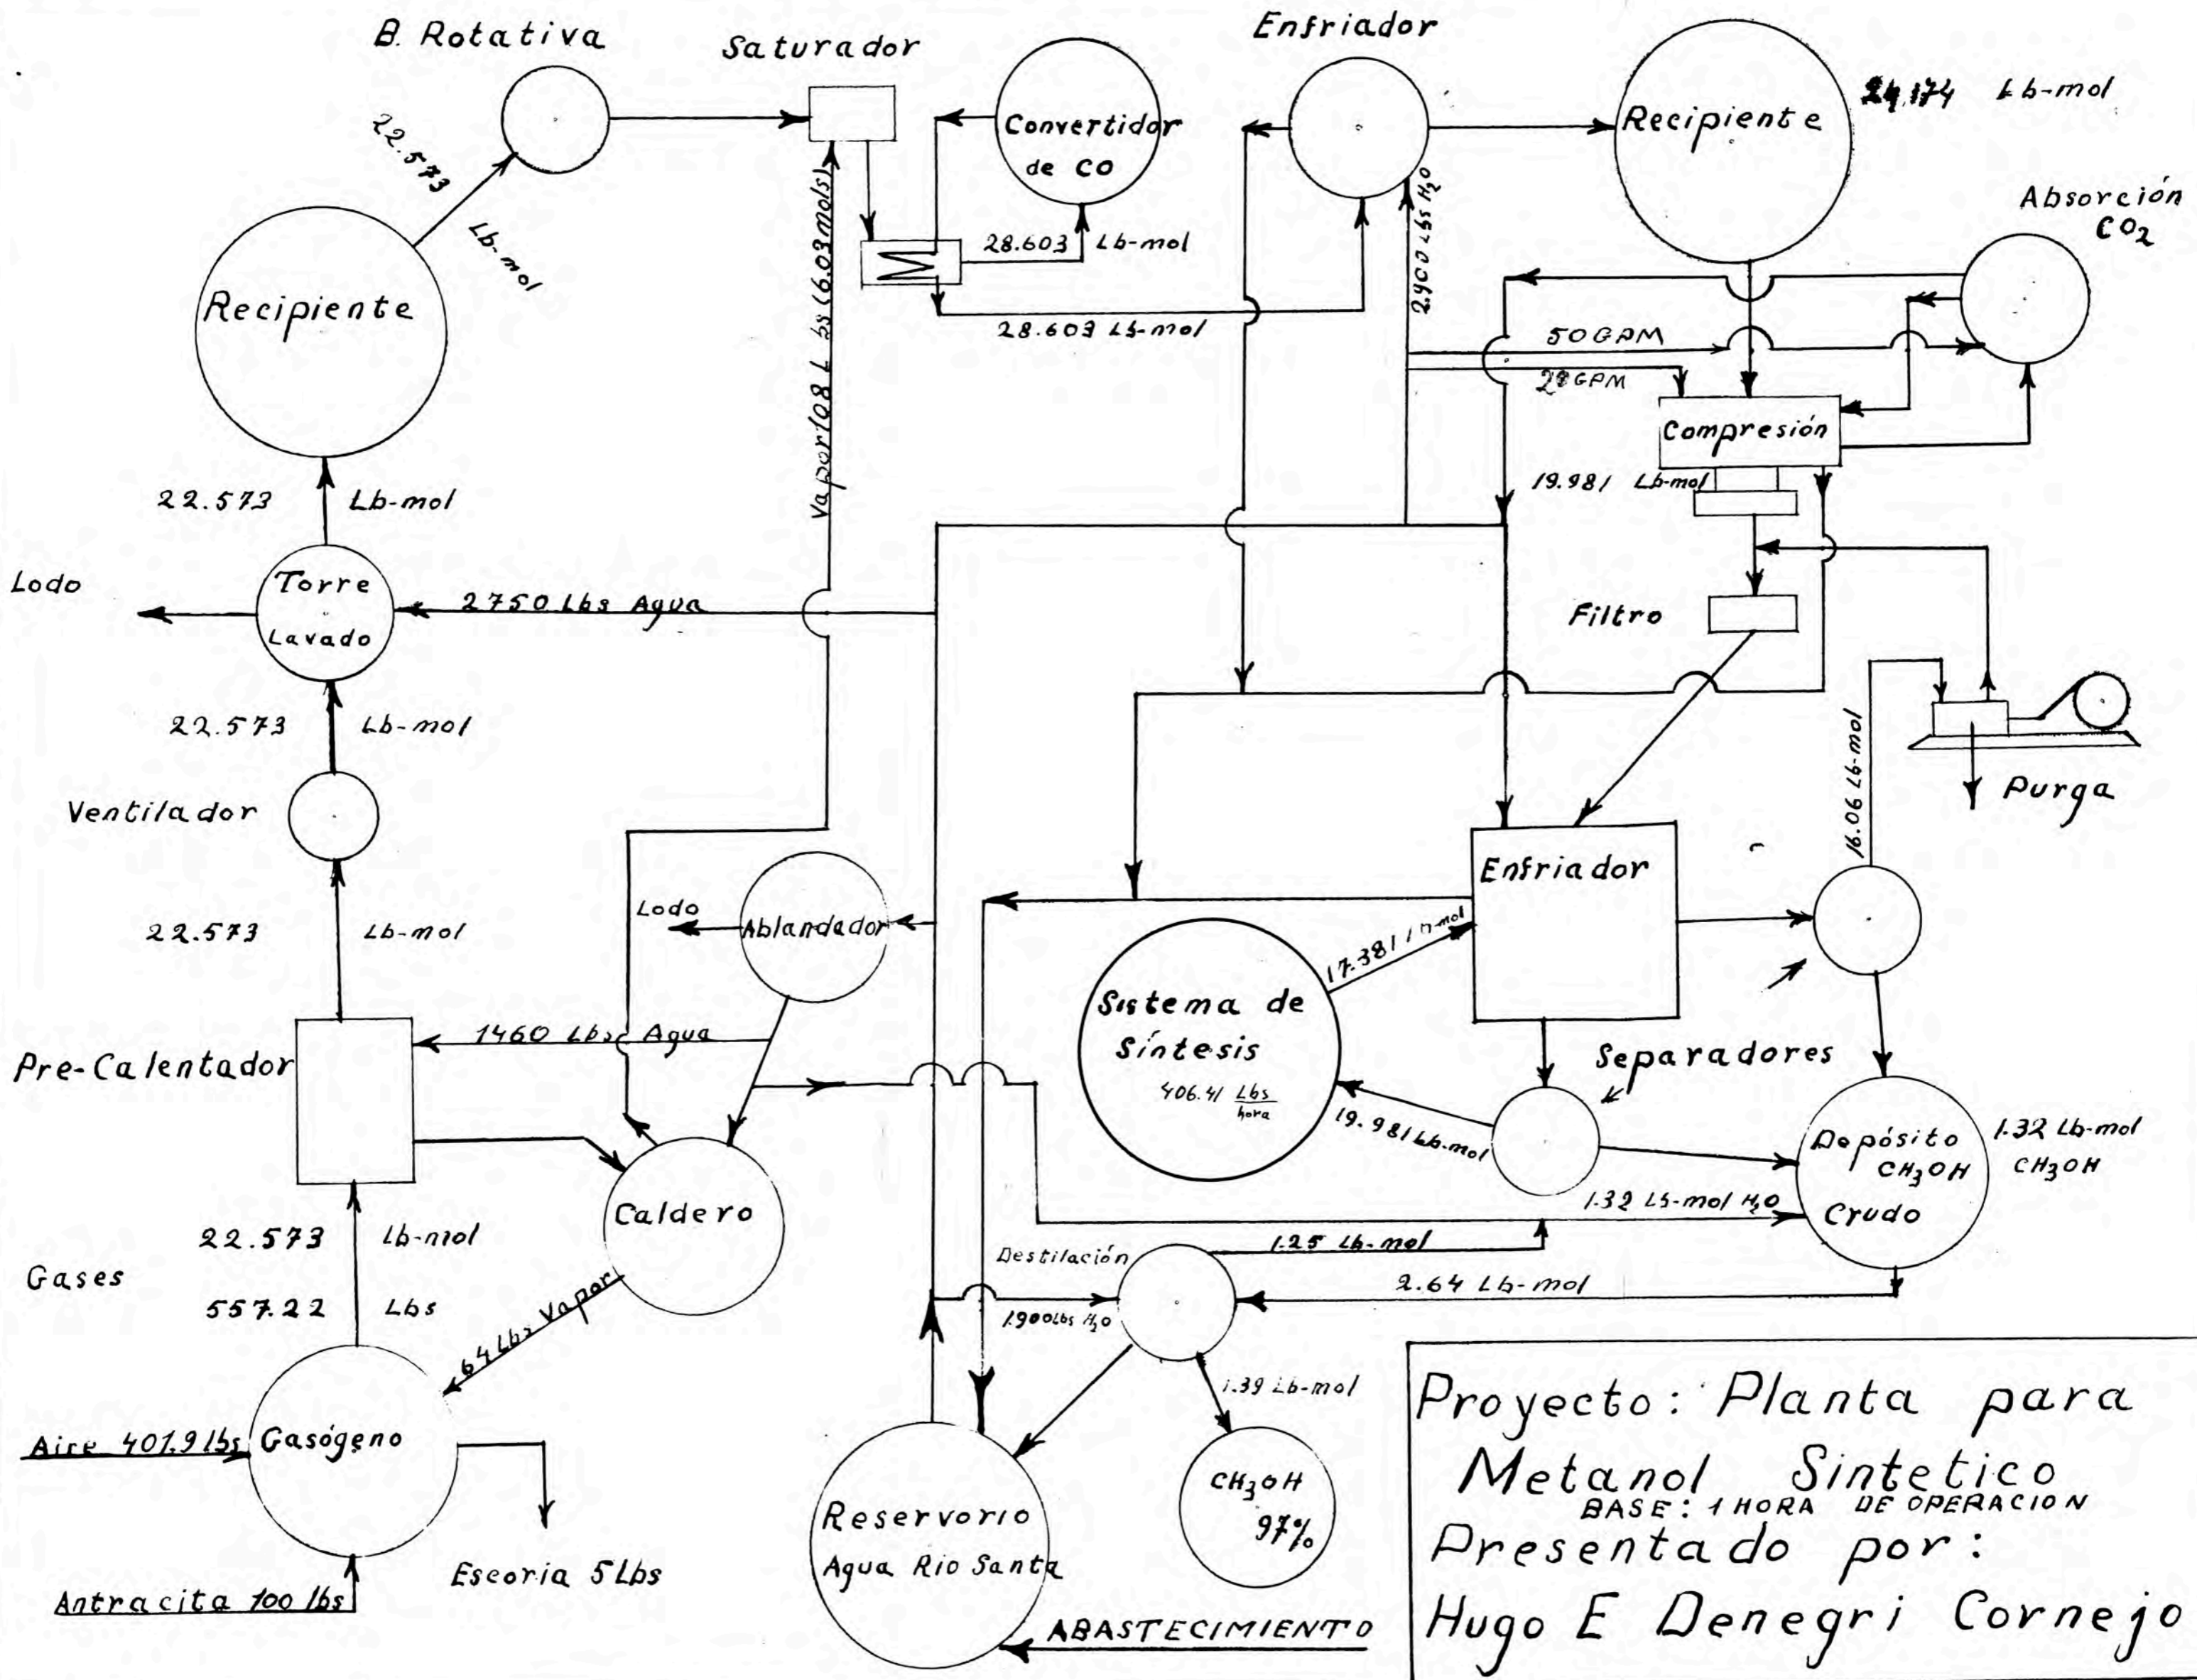 B. Rotativa
Saturador
Enfriador
Convertidor
de CO
Recipiente
24.174 Lb-mol
Absorción
CO2
22.573
Lb-mol
Recipiente
Vapor 108 Lbs (6.03 mols)
28.603 Lb-mol
28.603 Lb-mol
2.900 Lbs H2O
50 GPM
28 GPM
Compresión
19.981 Lb-mol
22.573 Lb-mol
Lodo
Torre
Lavado
2750 Lbs Agua
Filtro
22.573 Lb-mol
Ventilador
16.06 Lb-mol
Purga
22.573 Lb-mol
Lodo
Ablandador
Enfriador
17.381 Lb-mol
Sistema de
Síntesis
406.41 Lbs
hora
Separadores
1460 Lbs Agua
Pre-Calentador
19.981 Lb-mol
Depósito
CH3OH
Crudo
1.32 Lb-mol
CH3OH
Caldero
1.32 Lb-mol H2O
22.573 Lb-mol
Gases
557.22 Lbs
Destilación
1.25 Lb-mol
2.64 Lb-mol
1.900 Lbs H2O
64 Lbs Vapor
1.39 Lb-mol
Aire 401.9 lbs
Gasógeno
CH3OH
97%
Reservorio
Agua Rio Santa
Escoria 5 Lbs
Antracita 100 lbs
ABASTECIMIENTO
Proyecto: Planta para
Metanol Sintetico
BASE: 1 HORA DE OPERACION
Presentado por:
Hugo E Denegri Cornejo